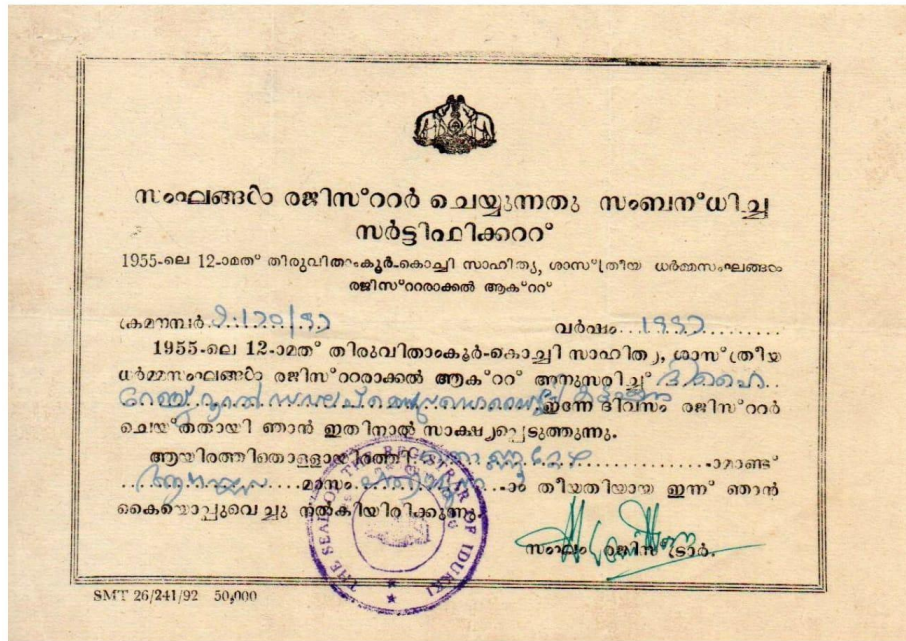 സംഘങ്ങൾ രജിസ്റ്റർ ചെയ്യുന്നതു സംബന്ധിച്ച
സർട്ടിഫിക്കററ്
1955-ലെ 12-ാമത് തിരുവിതാംകൂർ-കൊച്ചി സാഹിത്യ, ശാസ്ത്രീയ ധർമ്മസംഘങ്ങൾ
രജിസ്റ്ററാക്കൽ ആക്ററ്
ക്രമനമ്പർ വർഷം 1997
1955-ലെ 12-ാമത് തിരുവിതാംകൂർ-കൊച്ചി സാഹിത്യ, ശാസ്ത്രീയ
ധർമ്മസംഘങ്ങൾ രജിസ്റ്ററാക്കൽ ആക്ററ് അനുസരിച്ച് ദി ഹൈ
റേഞ്ച് റൂറൽ ഇന്നേ ദിവസം രജിസ്റ്റർ
ചെയ്തതായി ഞാൻ ഇതിനാൽ സാക്ഷ്യപ്പെടുത്തുന്നു.
ആയിരത്തിതൊള്ളായിരത്തി -ാമാണ്ട്
മാസം -ാം തീയതിയായ ഇന്ന് ഞാൻ
കൈയൊപ്പുവെച്ചു നൽകിയിരിക്കുന്നു.
സംഘം രജിസ്ട്രാർ.
THE SEAL OF THE REGISTRAR OF IDUKKI
SMT 26/241/92 50,000